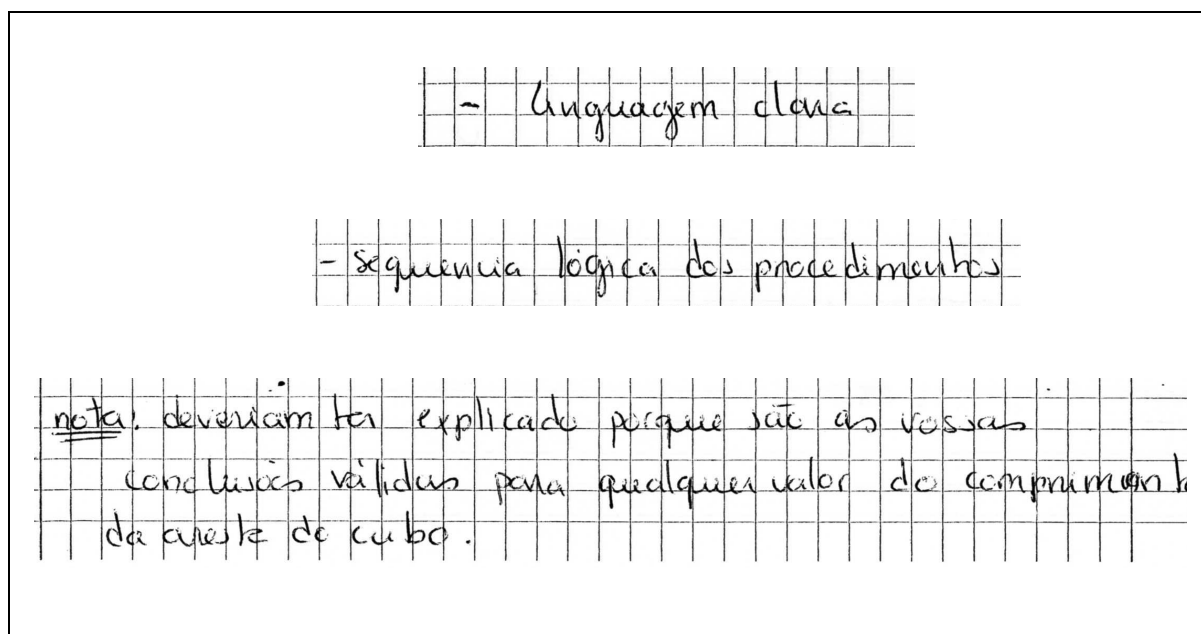 - linguagem clara
- sequência lógica dos procedimentos
nota: deveriam ter explicado porque são as vossas
conclusões válidas para qualquer valor do comprimento
da aresta do cubo.